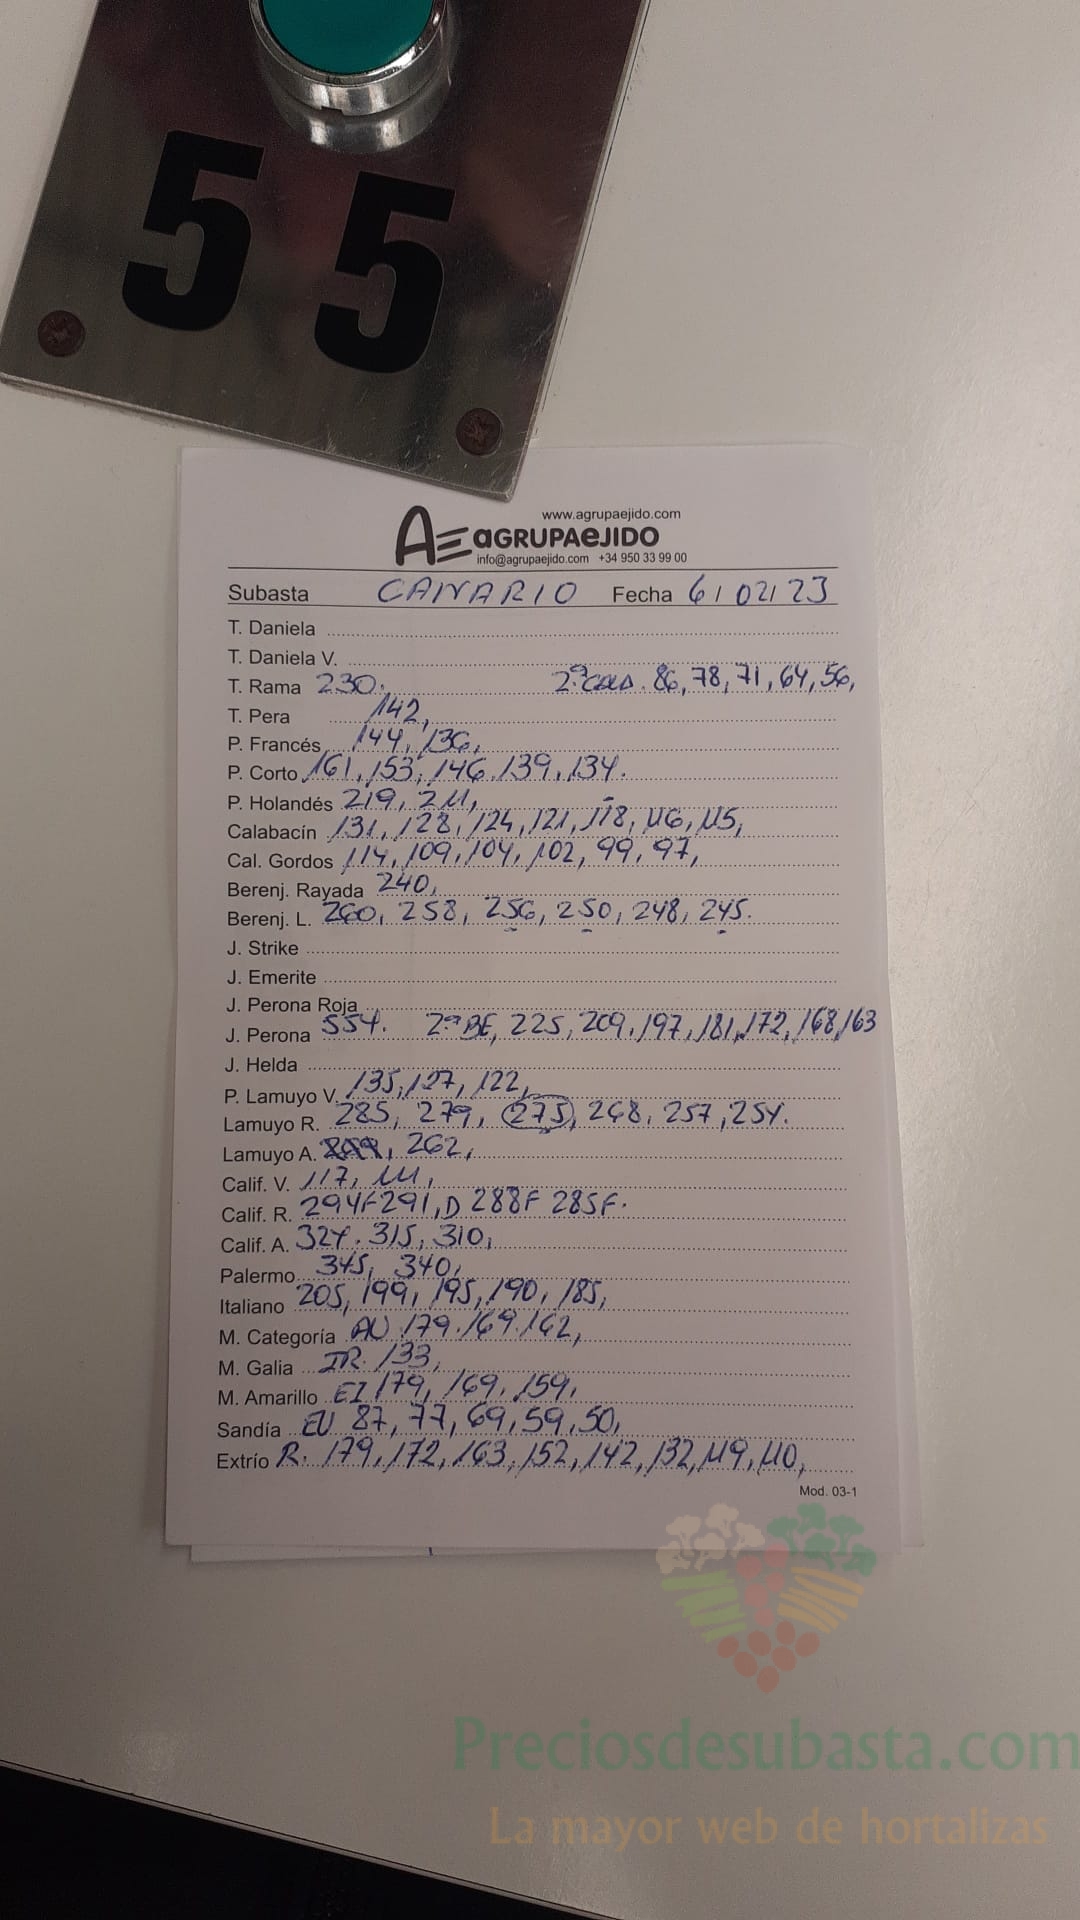 55
www.agrupaejido.com
AE aGRUPAeJIDO
info@agrupaejido.com +34 950 33 99 00
Subasta CANARIO Fecha 6/02/23
T. Daniela
T. Daniela V.
T. Rama 230. 2ª CALD. 86, 78, 71, 64, 56,
T. Pera 142,
P. Francés 144, 136,
P. Corto 161, 153, 146, 139, 134.
P. Holandés 219, 211,
Calabacín 131, 128, 124, 121, 118, 116, 115,
Cal. Gordos 114, 109, 104, 102, 99, 97,
Berenj. Rayada 240,
Berenj. L. 260, 258, 256, 250, 248, 245.
J. Strike
J. Emerite
J. Perona Roja
J. Perona 554. 2ª BE, 225, 209, 197, 181, 172, 168, 163
J. Helda
P. Lamuyo V. 135, 127, 122,
Lamuyo R. 285, 279, 275, 268, 257, 254.
Lamuyo A. 262,
Calif. V. 117, 111,
Calif. R. 294F 291, D 288F 285F.
Calif. A. 324. 315, 310,
Palermo 345, 340,
Italiano 205, 199, 195, 190, 185,
M. Categoría AU 179. 169. 162,
M. Galia IR. 133,
M. Amarillo EI 179, 169, 159,
Sandía EU 87, 77, 69, 59, 50,
Extrío R. 179, 172, 163, 152, 142, 132, 119, 110,
Mod. 03-1
Preciosdesubasta.com
La mayor web de hortalizas